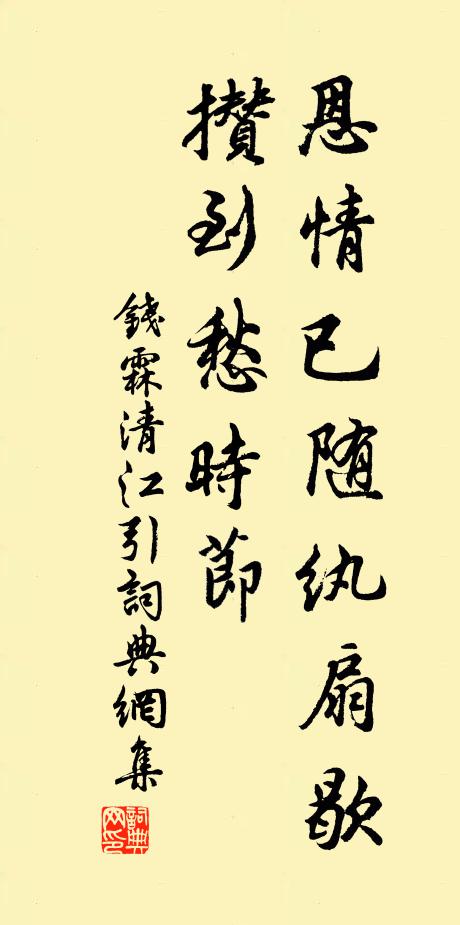 恩情已随纨扇歇
攒到愁時節
錢霖清江引詞典網集
詞典网印